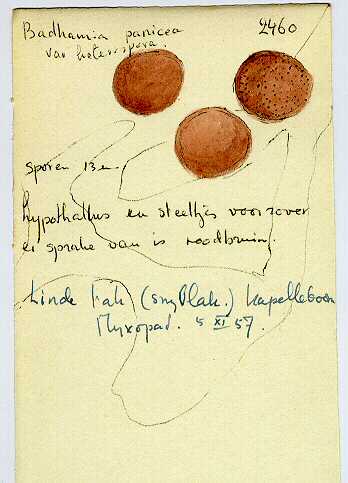 Badhamia panicea
var heterospora.
2460
sporen 13 u
hypothallus en steeltjes voorzover
er sprake van is roodbruin.
Linde tak (snyvlak.) Kapelleboom
Myxopad. 5 XI 57.